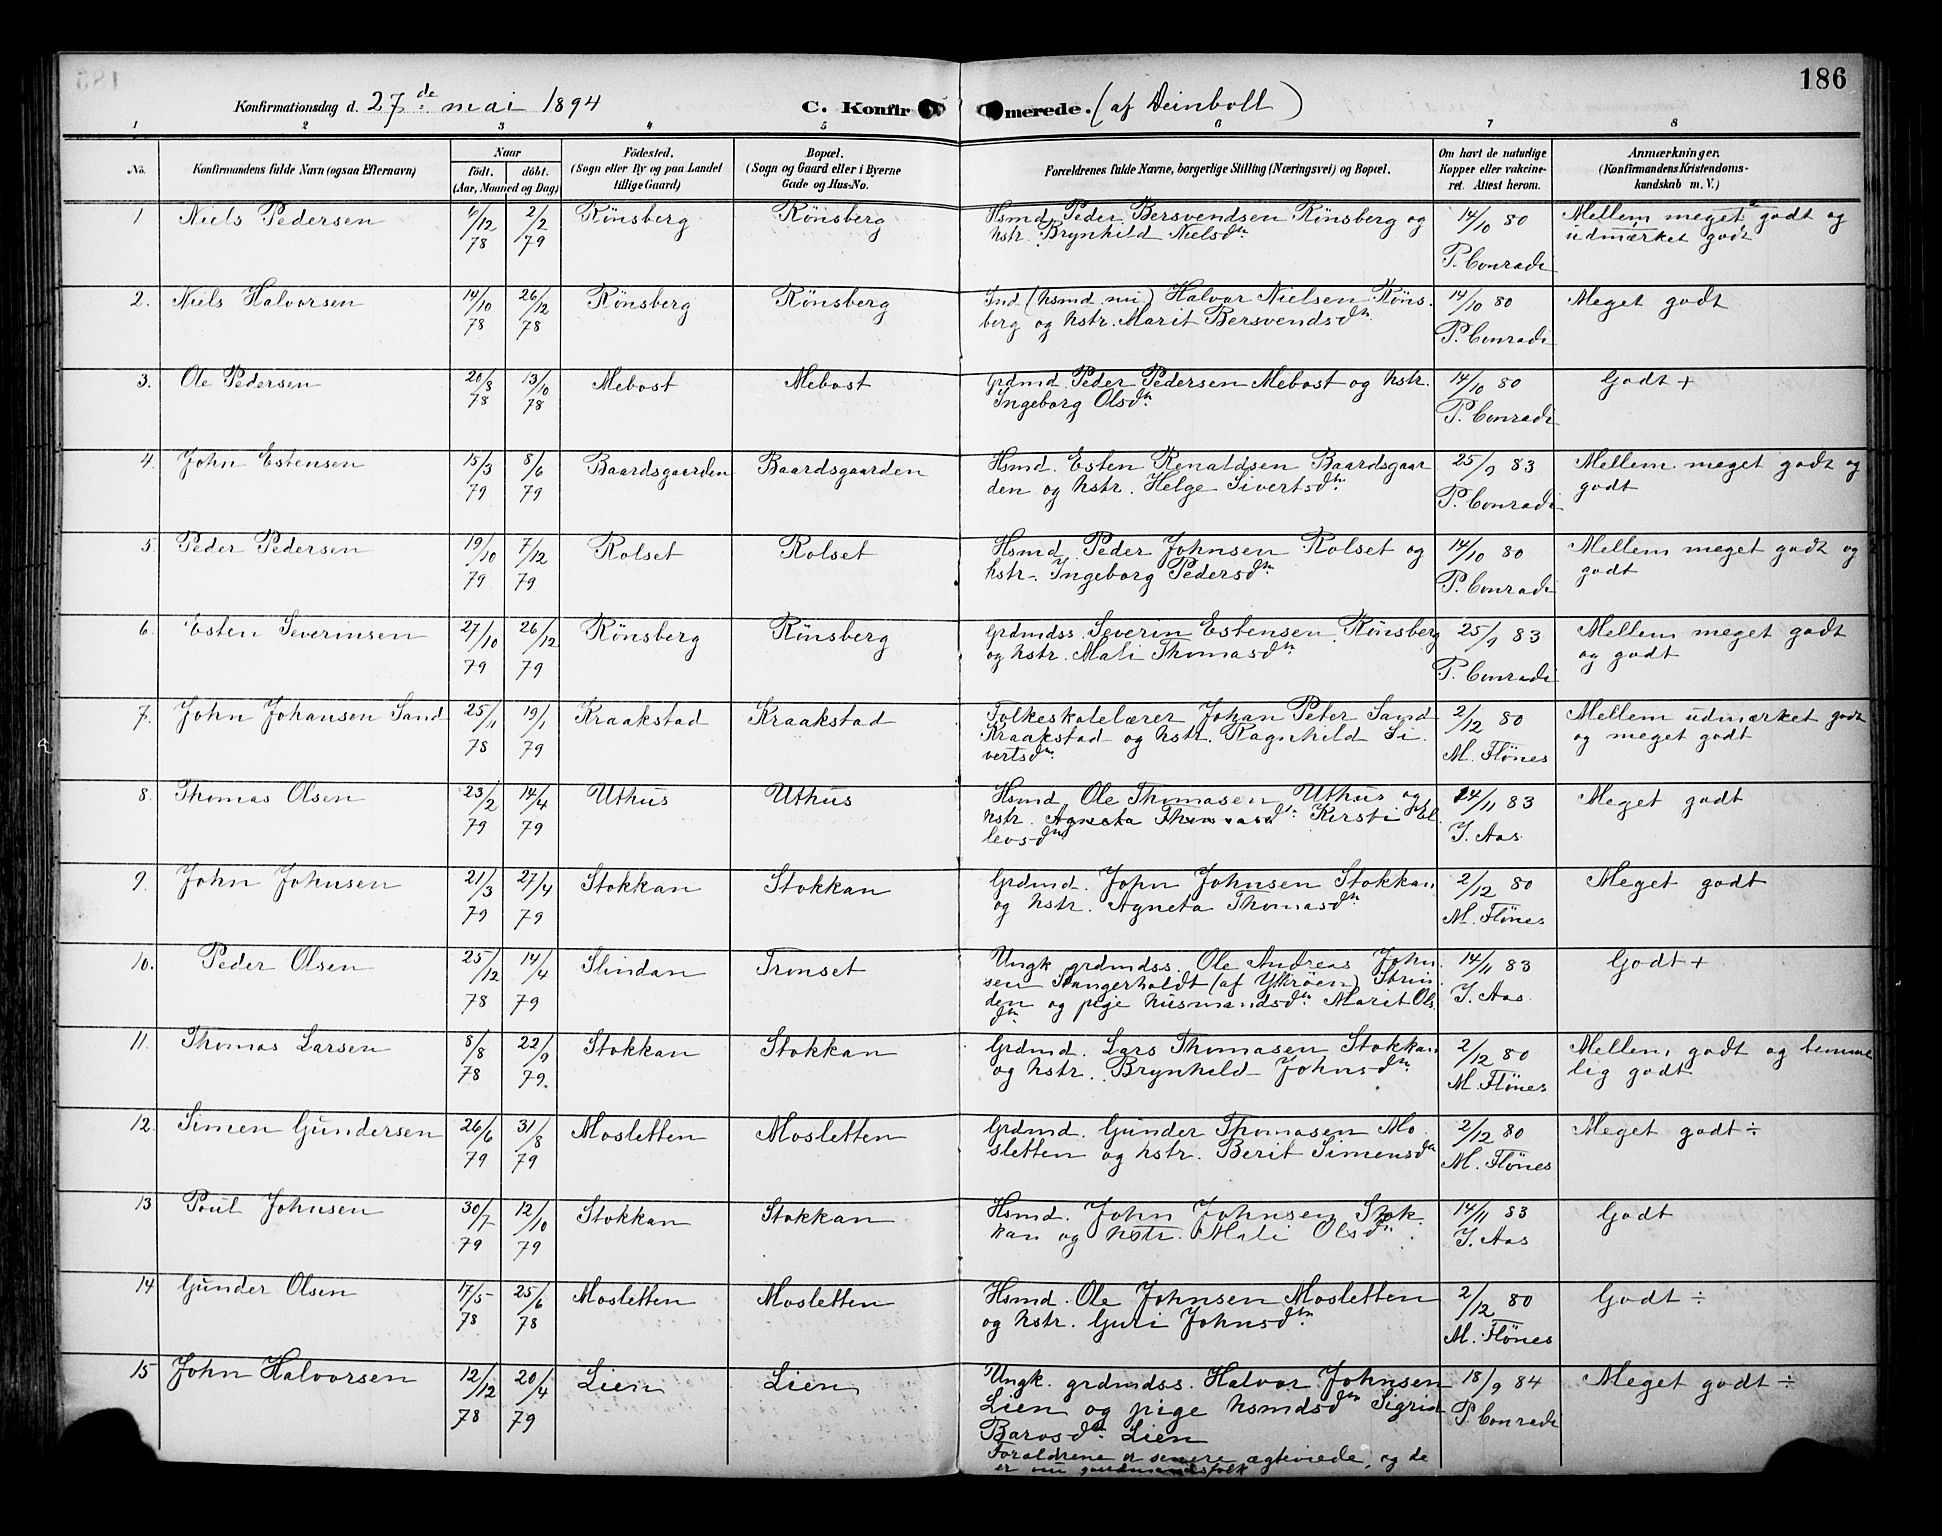 186
Konfirmationsdag d. 27de mai 1894 C. Konfirmerede. (af Deinboll)
1 2 3 4 5 6 7 8
No. Konfirmandens fulde Navn (ogsaa Efternavn) Naar født. døbt. (Aar, Maaned og Dag) Fødested. (Sogn eller By og paa Landet tillige Gaard) Bopæl. (Sogn og Gaard eller i Byerne Gade og Hus-No. Forældrenes fulde Navne, borgerlige Stilling (Næringsvei) og Bopæl. Om havt de naturlige Kopper eller vakcineret. Attest herom. Anmærkninger. (Konfirmandens Kristendomskundskab m. V.)
1 Niels Pedersen 4/12 78 2/2 79 Rönsberg Rönsberg Hsmd. Peder Bersvendsen Rönsberg og 14/10 80 Mellem meget godt og
hstr. Brynhild Nielsdtr. P. Conradi udmærket godt
2. Niels Halvorsen 14/10 78 26/12 78 Rönsberg Rönsberg Ind. (hsmd. nu) Halvor Nielsen Röns- 14/10 80 Meget godt
berg og hstr. Marit Bersvendsdtr. P. Conradi
3. Ole Pedersen 20/8 78 13/10 78 Mebost Mebost Grdmd. Peder Pedersen Mebost og hstr. 14/10 80 Godt +
Ingeborg Olsdtr. P. Conradi
4. John Estensen 15/3 79 8/6 79 Baardsgaarden Baardsgaarden Hsmd. Esten Renaldsen Baardsgaar 25/9 83 Mellem meget godt og
den og hstr. Helge Sivertsdtr. P. Conradi godt
5. Peder Pedersen 19/10 79 7/12 79 Rolset Rolset Hsmd. Peder Johnsen Rolset og 14/10 80 Mellem meget godt og
hstr. Ingeborg Pedersdtr. P. Conradi godt
6. Esten Severinsen 27/10 79 26/12 79 Rönsberg Rönsberg Grdmdss. Severin Estensen Rönsberg 25/9 83 Mellem meget godt
og hstr. Mali Thomasdtr. P. Conradi og godt
7. John Johansen Sand 25/11 78 19/1 79 Kraakstad Kraakstad Folkeskolelærer Johan Peter Sand 2/12 80 Mellem udmærket godt
Kraakstad og hstr. Ragnhild Si- M. Flönes og meget godt
vertsdtr.
8. Thomas Olsen 23/2 79 14/4 79 Uthus Uthus Hsmd. Ole Thomasen Uthus og 14/11 83 Meget godt
hstr. Agneta Thomasdtr. Kirsti El- J. Aas
levsdtr.
9. John Johnsen 21/3 79 27/4 79 Stokkan Stokkan Grdmd. John Johnsen Stokkan 2/12 80 Meget godt
og hstr. Agneta Thomasdtr. M. Flönes
10. Peder Olsen 25/12 78 14/4 79 Slindan Tronset Ungk. grdmdss. Ole Andreas John- 14/11 83 Godt +
sen Stangerholdt (af Yttröen) J. Aas
den og pige husmandsdtr. Marit Ols
dtr.
11. Thomas Larsen 8/8 78 22/9 79. Stokkan Stokkan Grdmd. Lars Thomasen Stokkan 2/12 80 Mellem godt og temme
og hstr. Brynhild Johnsdtr. M. Flönes lig godt
12. Simen Gundersen 26/6 79 31/8 79 Mosletten Mosletten Grdmd. Gunder Thomasen Mo- 2/12 80 Meget godt ÷
sletten og hstr. Berit Simensdtr. M. Flönes
13 Poul Johnsen 30/7 79 12/10 79 Stokkan Stokkan Hsmd. John Johnsen Stok- 14/11 83 Godt
kan og hstr. Mali Olsdtr. J. Aas
14 Gunder Olsen 17/5 78 25/6 78 Mosletten Mosletten Hsmd. Ole Johnsen Mosletten 2/12 80 Godt ÷
og hstr. Guri Johnsdtr. M. Flönes
15 John Halvorsen 12/12 78 20/4 79 Lien Lien Ungk. grdmdss. Halvor Johnsen 18/9 84 Meget godt ÷
Lien og pige hsmdsdtr. Sigrid P. Conradi
Larosdtr. Lien
Forældrene er senere ægteviede, og de
er nu gaardmandsfolk